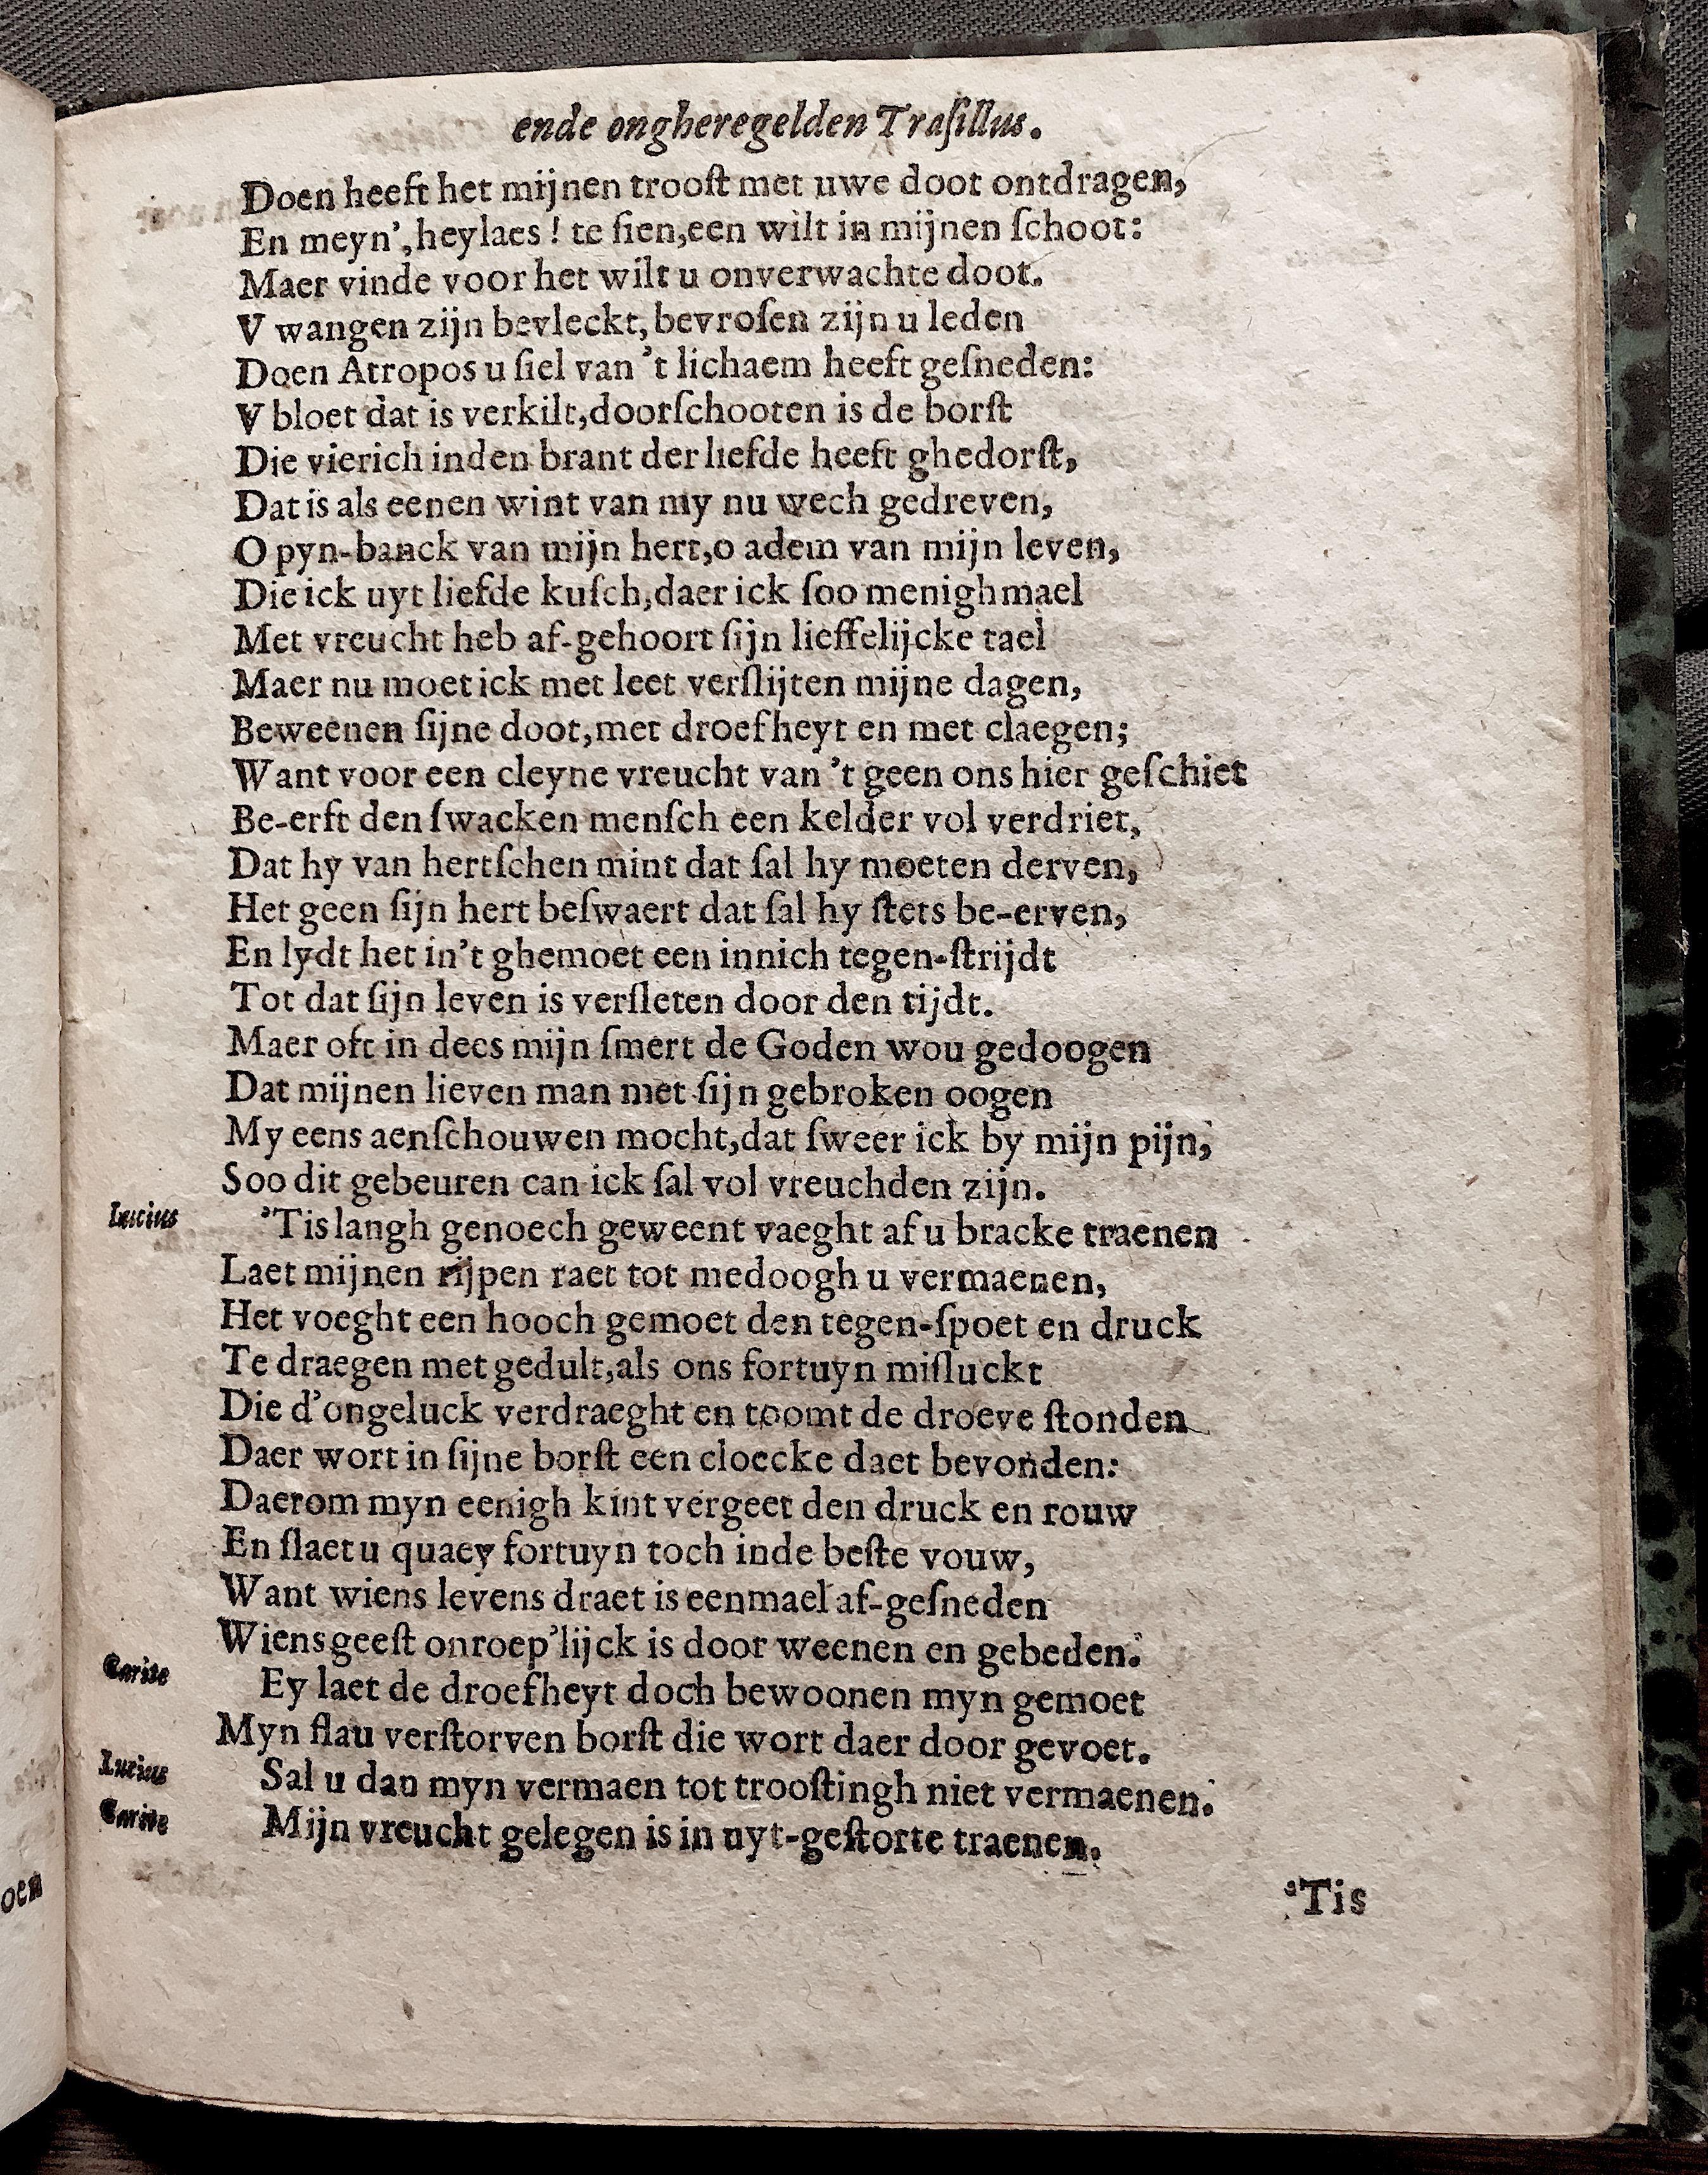 ende ongheregelden Traſillus.
Doen heeft het mijnen trooſt met uwe doot ontdragen,
En meyn', heylaes! te ſien, een wilt in mijnen ſchoot:
Maer vinde voor het wilt u onverwachte doot.
V wangen zijn bevleckt, bevroſen zijn u leden
Doen Atropos u ſiel van 't lichaem heeft geſneden:
V bloet dat is verkilt, doorſchooten is de borſt
Die vierich inden brant der liefde heeft ghedorſt,
Dat is als eenen wint van my nu wech gedreven,
O pyn-banck van mijn hert, o adem van mijn leven,
Die ick uyt liefde kuſch, daer ick ſoo menighmael
Met vreucht heb af-gehoort ſijn lieffelijcke tael
Maer nu moet ick met leet verſlijten mijne dagen,
Beweenen ſijne doot, met droefheyt en met claegen;
Want voor een cleyne vreucht van 't geen ons hier geſchiet
Be-erft den ſwacken menſch een kelder vol verdriet,
Dat hy van hertſchen mint dat ſal hy moeten derven,
Het geen ſijn hert beſwaert dat ſal hy ſtets be-erven,
En lydt het in't ghemoet een innich tegen-ſtrijdt
Tot dat ſijn leven is verſleten door den tijdt.
Maer oft in dees mijn ſmert de Goden wou gedoogen
Dat mijnen lieven man met ſijn gebroken oogen
My eens aenſchouwen mocht, dat ſweer ick by mijn pijn,
Soo dit gebeuren can ick ſal vol vreuchden zijn.
Lucius 'Tis langh genoech geweent vaeght af u bracke traenen
Laet mijnen rijpen raet tot medoogh u vermaenen,
Het voeght een hooch gemoet den tegen-ſpoet en druck
Te draegen met gedult, als ons fortuyn miſluckt
Die d'ongeluck verdraeght en toomt de droeve ſtonden
Daer wort in ſijne borſt een cloecke daet bevonden:
Daerom myn eenigh kint vergeet den druck en rouw
En ſlaet u quaey fortuyn toch inde beſte vouw,
Want wiens levens draet is eenmael af-geſneden
Wiens geeſt onroep'lijck is door weenen en gebeden.
Carite Ey laet de droefheyt doch bewoonen myn gemoet
Myn flau verſtorven borſt die wort daer door gevoet.
Lucius Sal u dan myn vermaen tot trooſtingh niet vermaenen.
Carite Mijn vreucht gelegen is in uyt-geſtorte traenen.
'Tis
oen